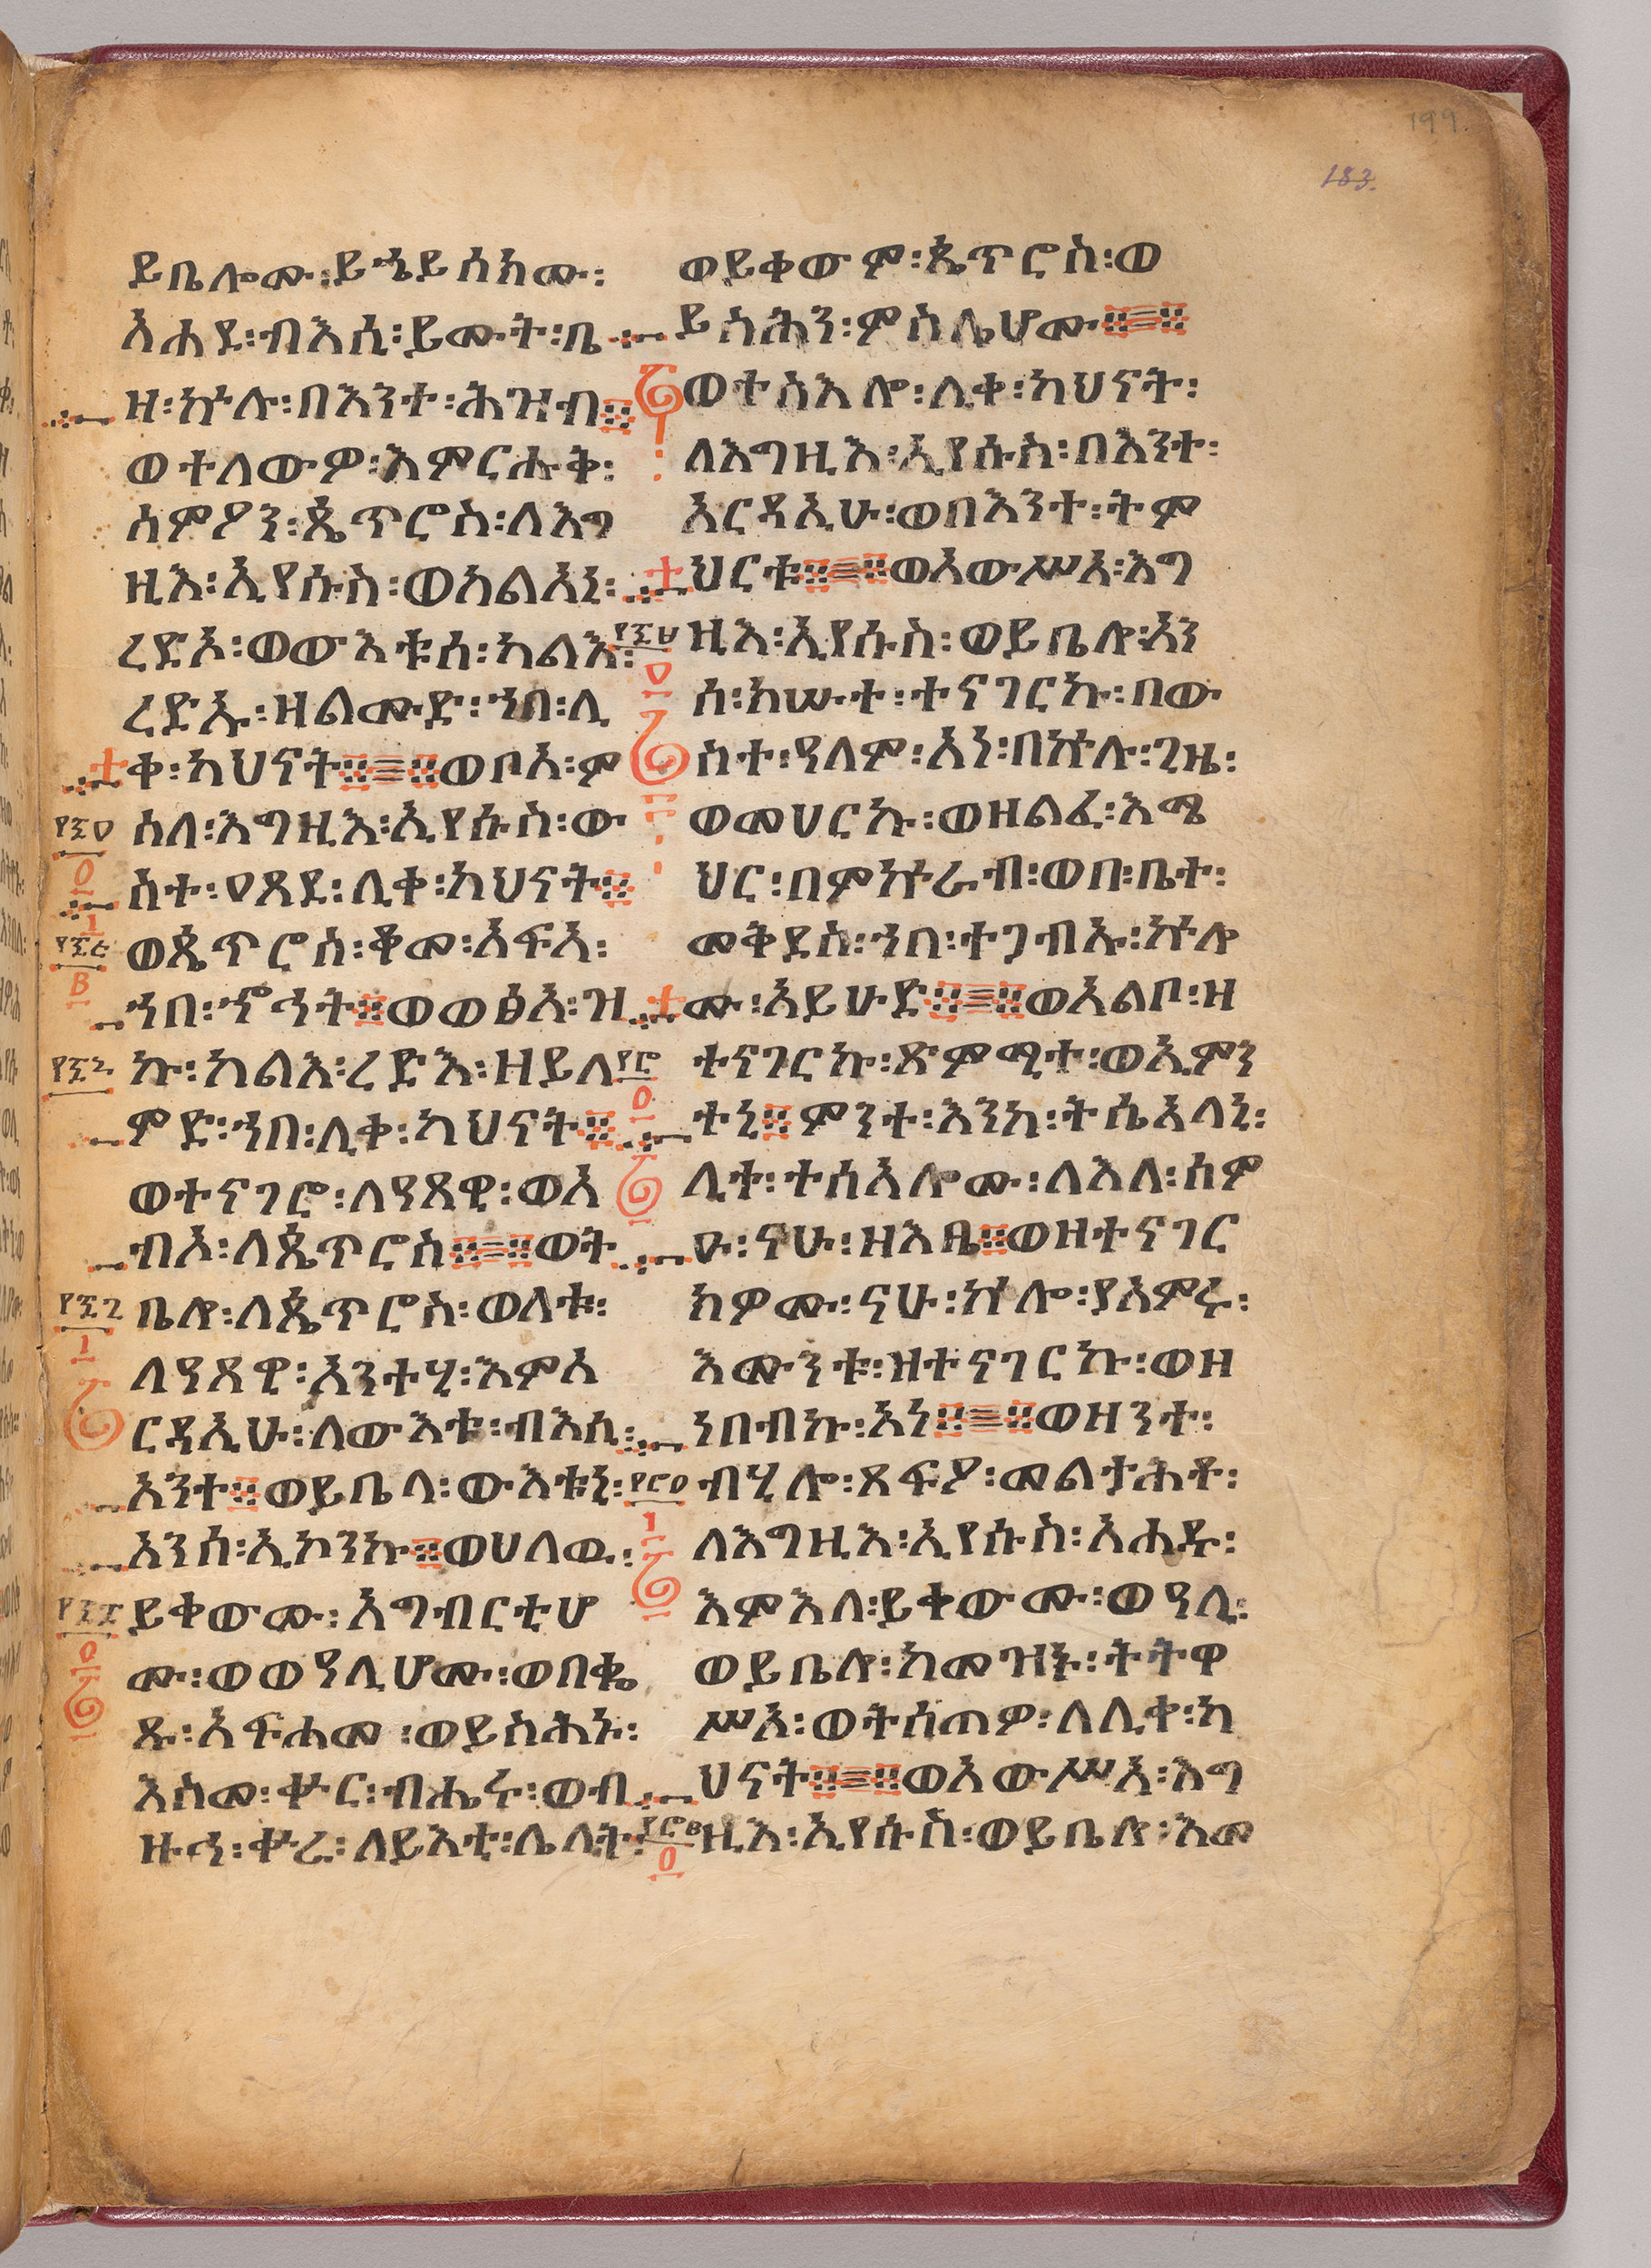 199.
183.
ይቤሎሙ፡ይኄይሰክሙ፡
አሐደ፡ብእሲ፡ይሙት፡ቤ
ዘ፡ኵሉ፡በእንተ፡ሕዝብ።
ወተለውዎ፡እምርሑቅ፡
ሰምዖን፡ጴጥሮስ፡ለእግ
ዚእ፡ኢየሱስ፡ወካልአኒ፡
ረድኦ፡ወውእቱሰ፡ካልእ፡
ረድኡ፡ዘልሙድ፡ኀበ፡ሊ
ቀ፡ካህናት።ወቦአ፡ም
ስለ፡እግዚእ፡ኢየሱስ፡ው
ስተ፡ዐጸደ፡ሊቀ፡ካህናት።
ወጴጥሮሰ፡ቆመ፡አፍአ፡
ኀበ፡ኆኅት።ወወፅአ፡ዝ
ኩ፡ካልእ፡ረድእ፡ዘይለ
ምድ፡ኀበ፡ሊቀ፡ካህናት።
ወተናገሮ፡ለዓጸዊ፡ወአ
ብኦ፡ለጴጥሮስ።ወት
ቤሎ፡ለጴጥሮስ፡ወለቱ፡
ለዓጸዊ፡አንተሂ፡እምአ
ርዳኢሁ፡ለውእቱ፡ብእሲ፡
አንተ።ወይቤላ፡ውእቱኒ፡
አንሰ፡ኢኮንኩ።ወሀለዉ፡
ይቀውሙ፡አግብርቲሆ
ሙ፡ወወዓሊሆሙ፡ወበቈ
ጹ፡አፍሐመ፡ወይስሕኑ፡
እስመ፡ቍር፡ብሔሩ፡ወብ
ዙኅ፡ቍረ፡ለይእቲ፡ሌሊት፡
ወይቀውም፡ጴጥሮስ፡ወ
ይስሕን፡ምስሌሆሙ።
ወተስእሎ፡ሊቀ፡ካህናት፡
ለእግዚእ፡ኢየሱስ፡በእንተ፡
አርዳኢሁ፡ወበእንተ፡ትም
ህርቱ።ወአውሥአ፡እግ
ዚእ፡ኢየሱስ፡ወይቤሎ፡አን
ሰ፡ክሡተ፡ተናገርኩ፡በው
ስተ፡ዓለም፡አነ፡በኵሉ፡ጊዜ፡
ወመሀርኩ፡ወዘልፈ፡እሜ
ህር፡በምኵራብ፡ወበ፡ቤተ፡
መቅደስ፡ኀበ፡ተጋብኡ፡ኵሎ
ሙ፡አይሁድ።ወአልቦ፡ዘ
ተናገርኩ፡ጽምሚተ፡ወኢምን
ተኒ።ምንተ፡እንከ፡ትሴአላኒ፡
ሊተ፡ተሰአሎሙ፡ለእለ፡ሰም
ዑ፡ናሁ፡ዘእቤ።ወዘተናገር
ክዎሙ፡ናሁ፡ኵሎ፡ያአምሩ፡
እሙንቱ፡ዝተናገርኩ፡ወዘ
ነበብኩ፡አነ።ወዘንተ፡
ብሂሎ፡ጸፍዖ፡መልታሕቶ፡
ለእግዚእ፡ኢየሱስ፡አሐዱ፡
እምእለ፡ይቀውሙ፡ወዓሊ፡
ወይቤሎ፡ከመዝኑ፡ትትዋ
ሥአ፡ወትሰጠዎ፡ለሊቀ፡ካ
ህናት።ወአውሥአ፡እግ
ዚእ፡ኢየሱስ፡ወይቤሎ፡እመ